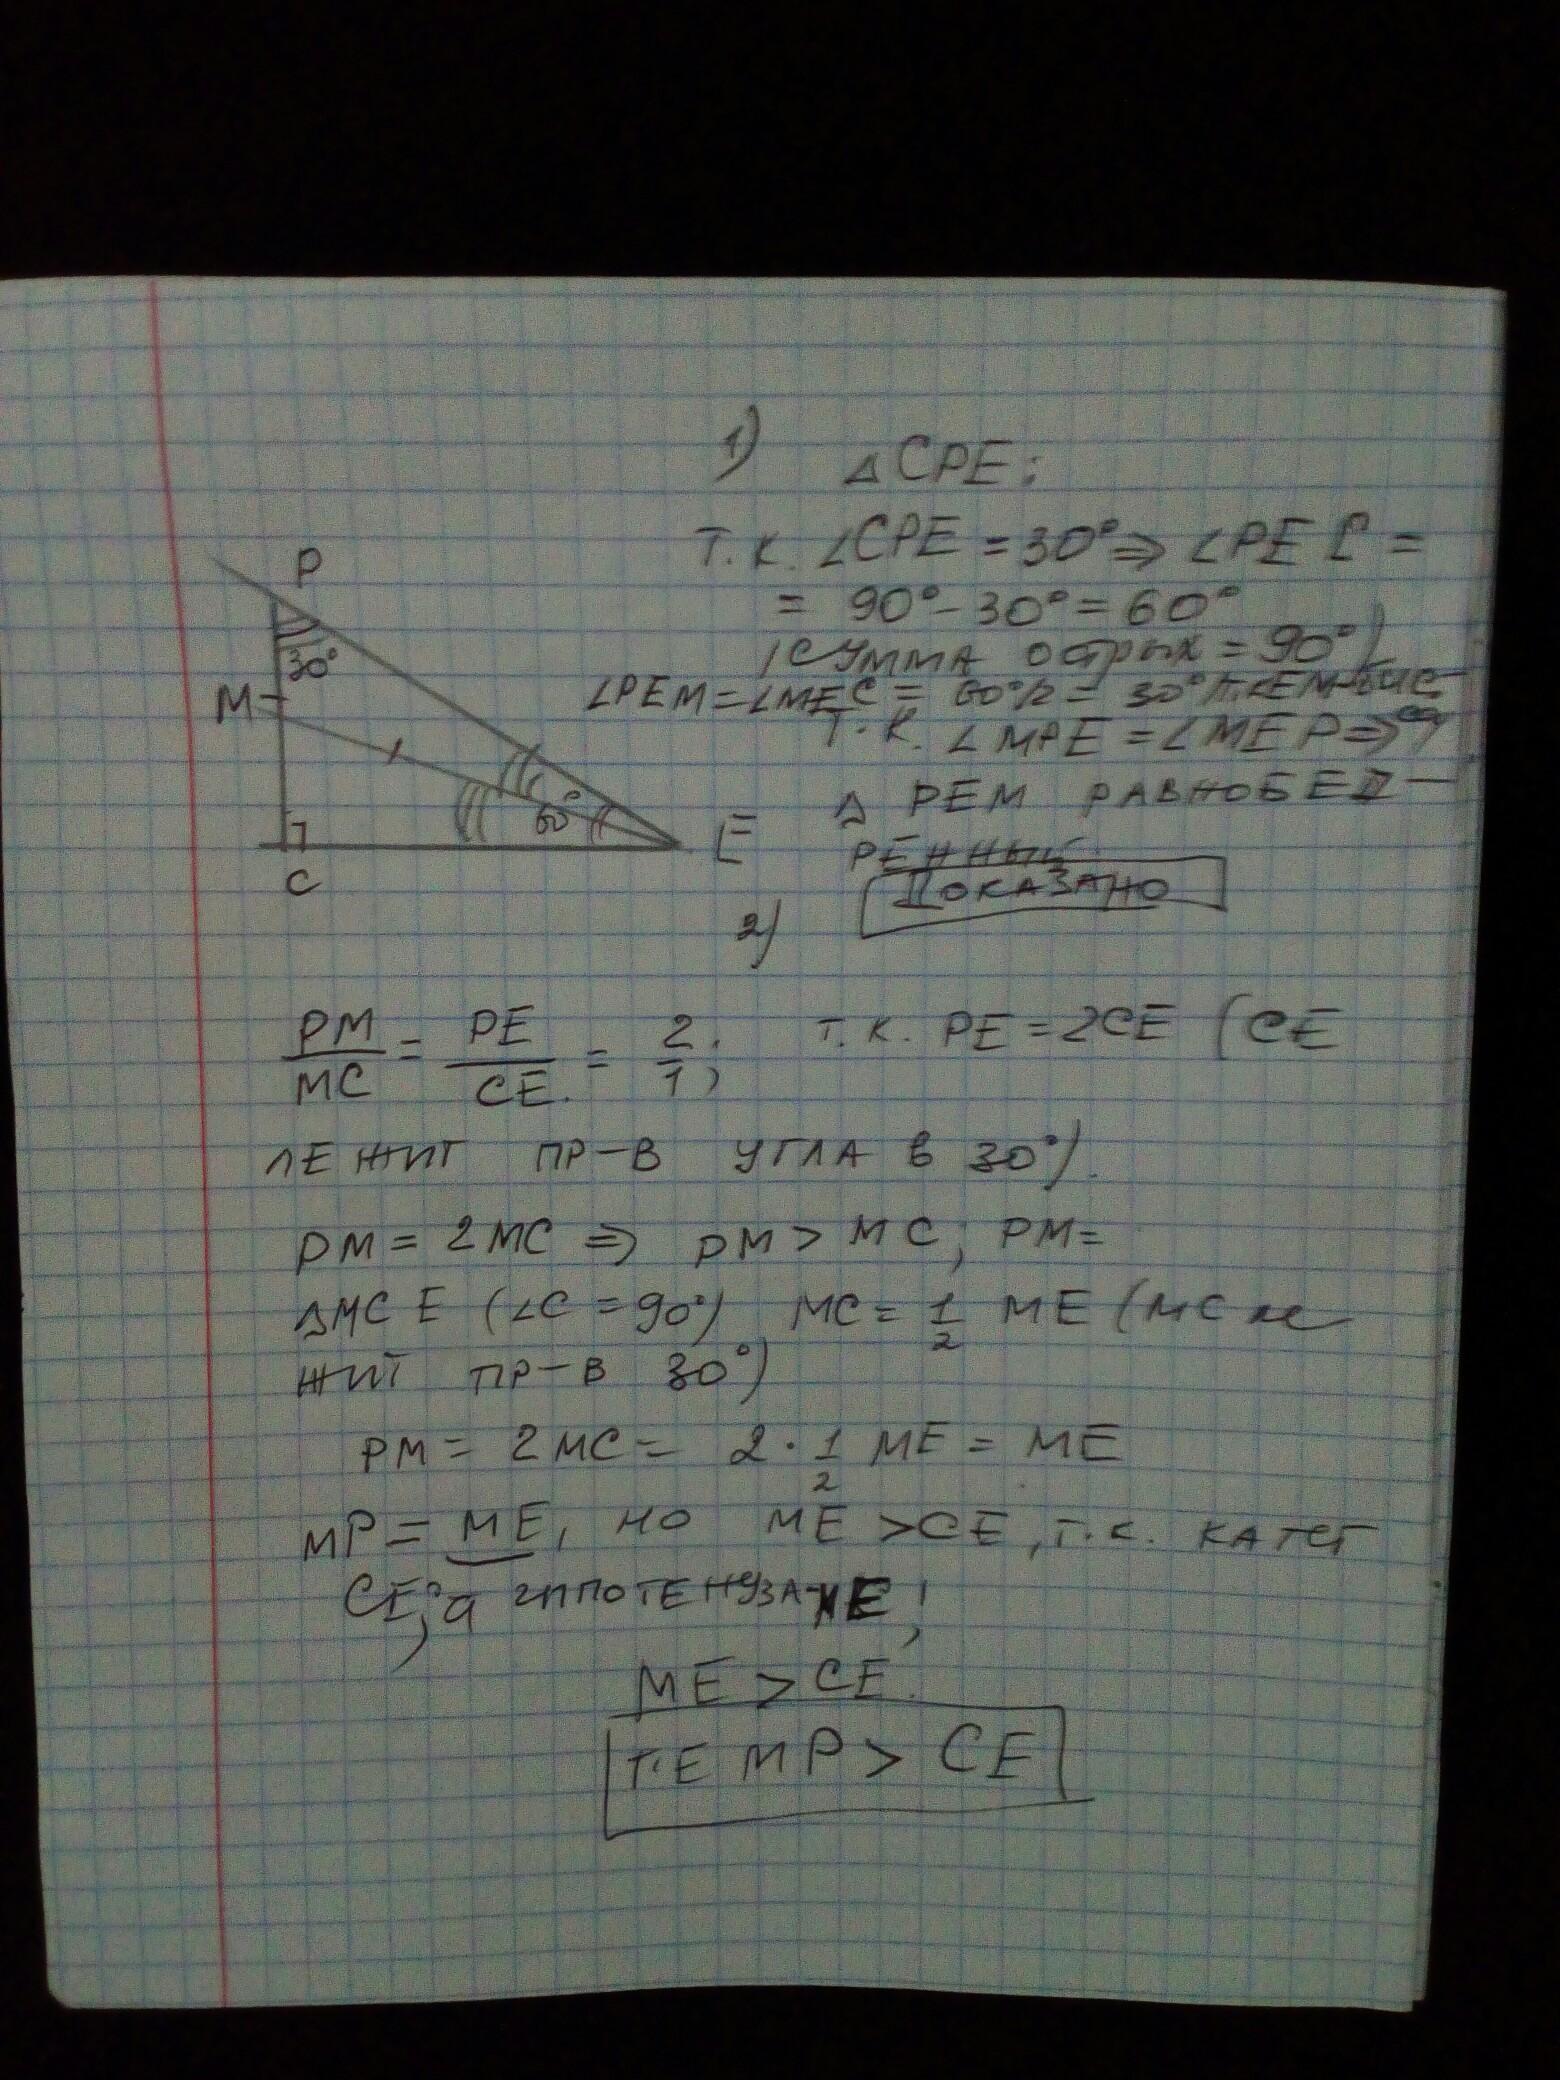 1) △CPE:
т.к. ∠CPE = 30° ⇒ ∠PEC =
= 90° - 30° = 60°
(сумма острых = 90°)
∠PEM = ∠MEC = 60°/2 = 30° т.к EM-бис
т.к. ∠MPE = ∠MEP ⇒
△ PEM равнобед-
ренный.
Доказано
P
30°
M
60°
E
C
2)
PM/MC = PE/CE. = 2/1; т.к. PE = 2CE (CE
лежит пр-в угла в 30°).
PM = 2MC ⇒ PM > MC; PM=
△MCE (∠C = 90°) MC = 1/2 ME (MC ле
жит пр-в 30°)
PM = 2MC = 2 · 1/2 ME = ME
MP = ME, но ME > CE, т.к. катет
CE, а гипотенуза-ME;
ME > CE.
т.е MP > CE